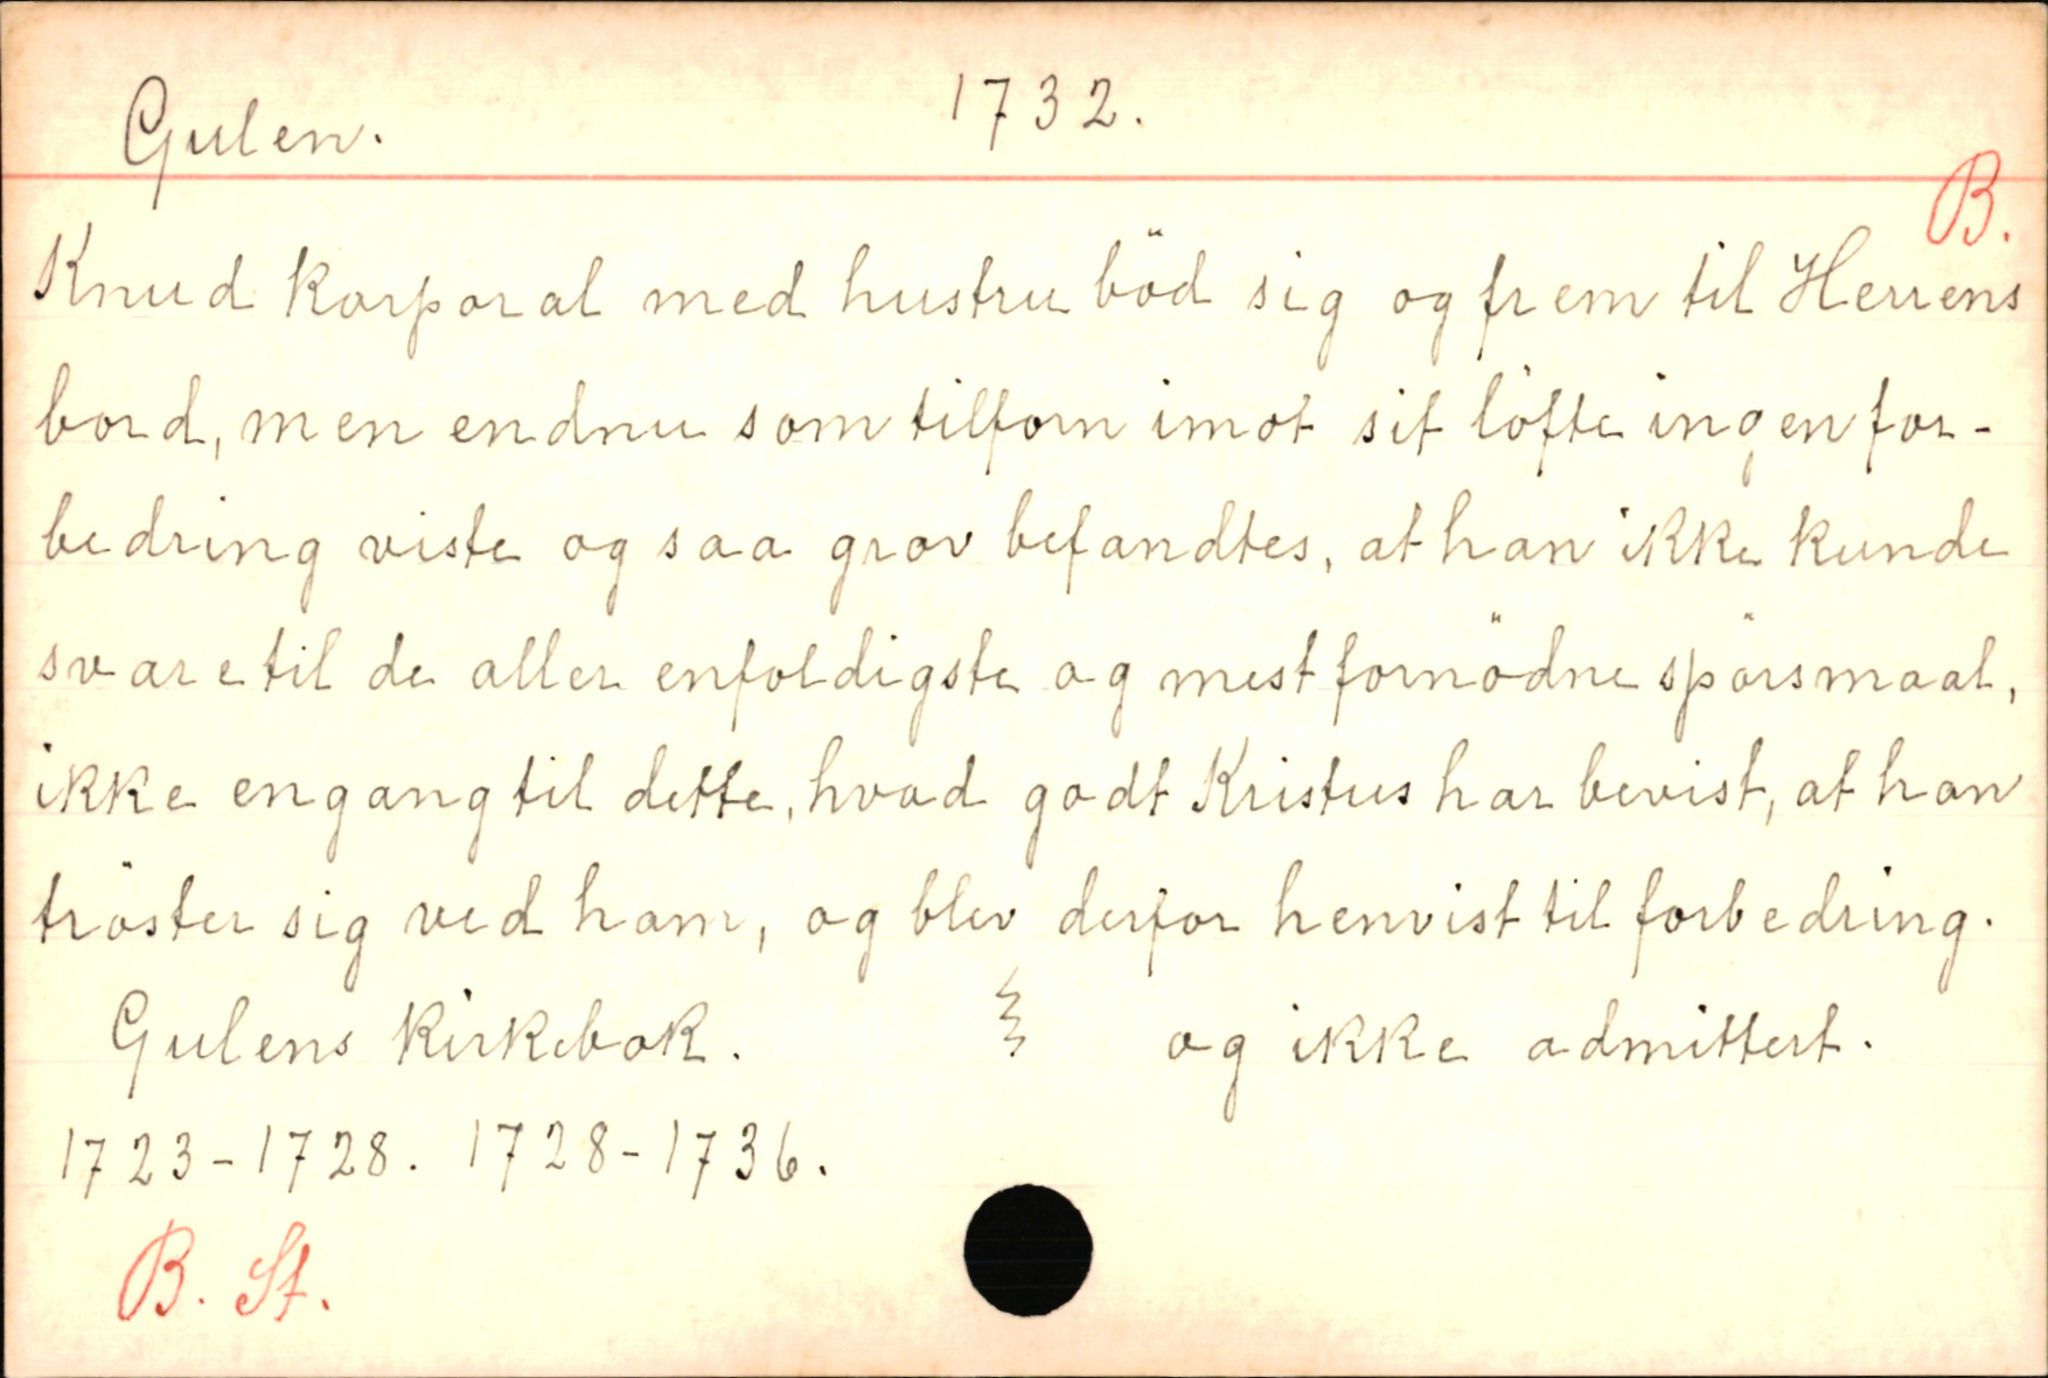 Gulen. 1732.
B.
Knud korporal med hustru böd sig og frem til Herrens
bord, men endnu som tilforn imot sit löfte ingen for-
bedring viste og saa grov befandtes, at han ikke kunde
svare til de aller enfoldigste og mest fornödne spörsmaal,
ikke engang til dette, hvad godt Kristus har bevist, at han
tröster sig ved ham, og blev derfor henvist til forbedring.
Gulens Kirkebok. og ikke admittert.
1723-1728. 1728-1736.
B. St.